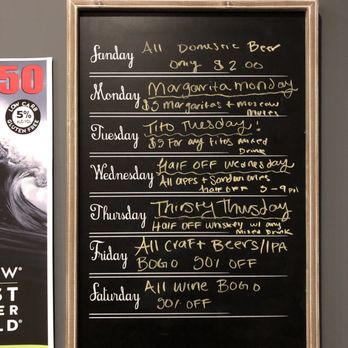 50
LOW CARB
5%
ALC/VOL
GLUTEN FREE
W®
ST
ER
LD®
Sunday All Domestic Beer
only $2.00
Monday Margarita monday
$3 margaritas + moscow
mules
Tuesday Tito Tuesday!
$3 For any titos mixed
Drink
Wednesday Half OFF Wednesday
All apps + Sandwiches
half OFF 5-9pm
Thursday Thirsty Thursday
Half OFF whiskey w/ any
mixed Drink
Friday All Craft Beers/IPA
BOGO 50% OFF
Saturday All Wine BOGO
50% OFF